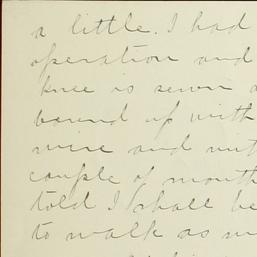 a little. I had
operation and
knee is sewn
bound up with
wire and
couple of month
told I shall be
to walk as